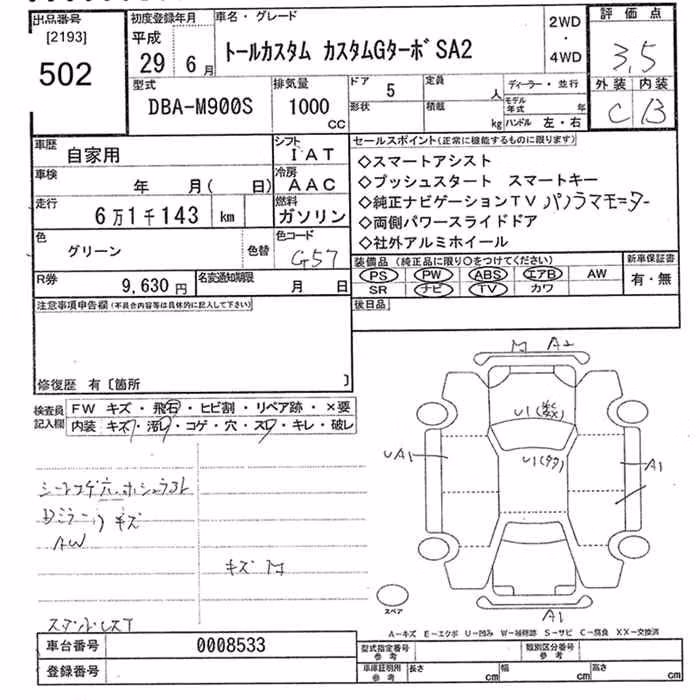 出品番号
[2193]
502
初度登録年月
平成
29年 6月
車名・グレード
トールカスタム カスタムGターボ SA2
2WD
・
4WD
評価点
3,5
外装 内装
C B
型式
DBA-M900S
排気量
1000
CC
ドア
5
形状
定員
人
積載
kg
ディーラー・並行
モデル年式 年
ハンドル 左・右
車歴
自家用
シフト
IAT
車検
年 月( 日)
冷房
AAC
走行
6万1千143 km
燃料
ガソリン
色
グリーン
色替
色コード
G57
R券
9,630円
名変通知期限
月 日
セールスポイント(正常に機能するものに限ります)
◇スマートアシスト
◇プッシュスタート スマートキー
◇純正ナビゲーションTV パノラマモニター
◇両側パワースライドドア
◇社外アルミホイール
装備品(純正品に限り○をつけてください)
PS PW ABS エアB AW
SR ナビ TV カワ
新車保証書
有・無
後日品
注意事項申告欄(不具合内容等は具体的に記入して下さい)
修復歴 有〔箇所 〕
検査員記入欄
FW キズ・飛石・ヒビ割・リペア跡・×要
内装 キズ・汚レ・コゲ・穴・スレ・キレ・破レ
キズ
AW
キズ
A2
U1
U1
UA1
A1
A1
スペア
A-キズ E-エクボ U-凹み W-補修跡 S-サビ C-腐食 XX-交換済
車台番号
0008533
登録番号
型式指定番号
参考
類別区分番号
参考
車庫証明用
参考
長さ cm
幅 cm
高さ cm